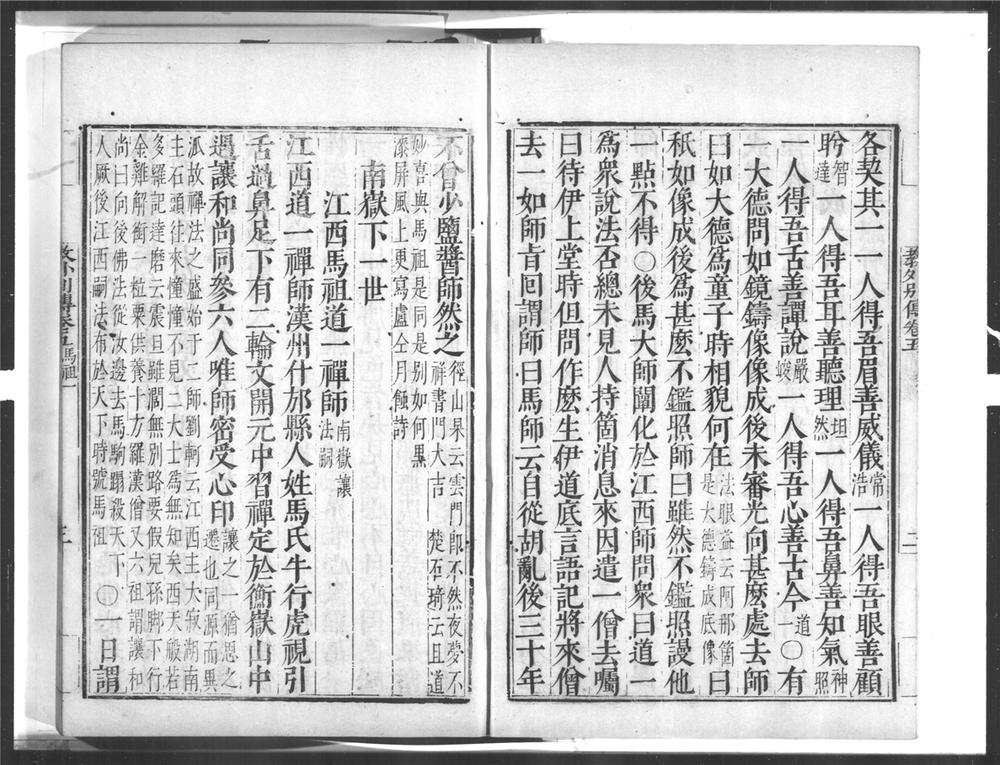 教外別傳卷五
二
各契其一一人得吾眉善威儀常浩一人得吾眼善顧
盻智達一人得吾耳善聽理坦然一人得吾鼻善知氣神照
一人得吾舌善譚說嚴峻一人得吾心善古今道一○有
一大德問如鏡鑄像像成後未審光向甚麽處去師
曰如大德爲童子時相貌何在法眼益云阿那箇是大德鑄成底像曰
秖如像成後爲甚麽不鑑照師曰雖然不鑑照謾他
一點不得○後馬大師闡化於江西師問衆曰道一
爲衆說法否總未見人持箇消息來因遣一僧去囑
曰待伊上堂時但問作麽生伊道底言語記將來僧
去一如師旨回謂師曰馬師云自從胡亂後三十年
不曾少鹽醬師然之徑山杲云雲門卽不然夜夢不祥書門大吉 楚石琦云且道
妙喜與馬祖是同是別如何黑漆屏風上更寫盧仝月蝕詩
南嶽下一世
江西馬祖道一禪師南嶽讓法嗣
江西道一禪師漢州什邡縣人姓馬氏牛行虎視引
舌過鼻足下有二輪文開元中習禪定於衡嶽山中
遇讓和尚同參六人唯師密受心印讓之一猶思之遷也同源而異
派故禪法之盛始于二師劉軻云江西主大寂湖南
主石頭往來憧憧不見二大士爲無知矣西天般若
多羅記達磨云震旦雖濶無別路要假兒孫脚下行
金雞解銜一粒粟供養十方羅漢僧又六祖謂讓和
尚曰向後佛法從汝邊去馬駒蹋殺天下
人厥後江西嗣法布於天下時號馬祖○一日謂
教外別傳卷五 馬祖一
三